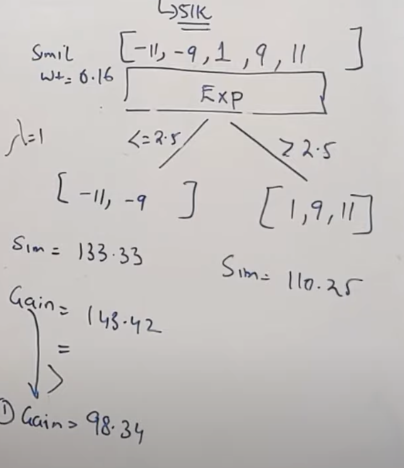 ↳51K
[-11, -9, 1, 9, 11 ]
Simil
wt= 0.16
Exp
λ=1
<=2.5
≥2.5
[-11, -9 ]
[1,9,11]
Sim = 133.33
Sim= 110.25
Gain= 143.42
=
① Gain= 98.34